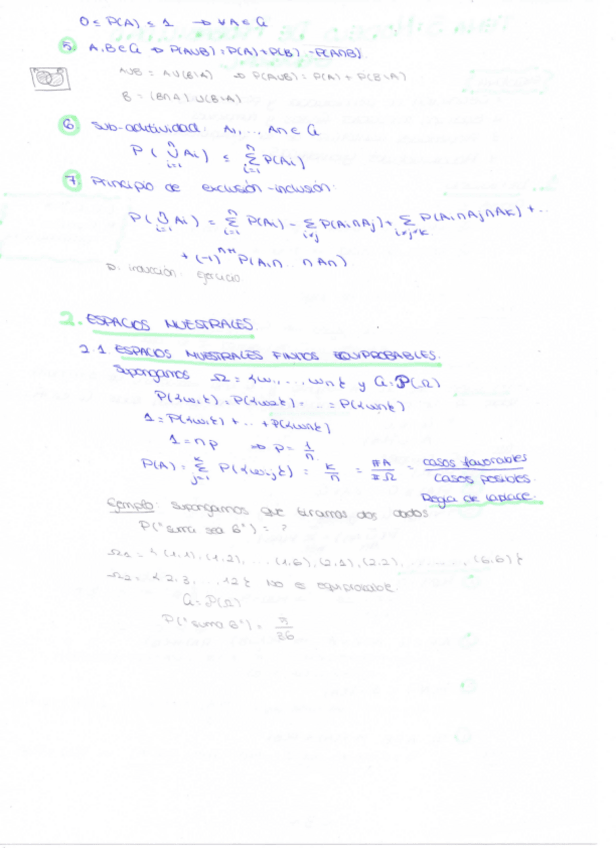 0 ≤ P(A) ≤ 1 → ∀A ∈ a
5. A,B ∈ a → P(A∪B) = P(A) + P(B) - P(A∩B)
A∪B = A∪(B\A) → P(A∪B) = P(A) + P(B\A)
B = (B∩A)∪(B\A)
6. Sub-aditividad: A₁, ..., An ∈ a
P(⋃ᵢ₌₁ⁿ Ai) ≤ Σᵢ₌₁ⁿ P(Ai)
7. Principio de exclusión-inclusión:
P(⋃ᵢ₌₁ⁿ Ai) = Σᵢ₌₁ⁿ P(Ai) - Σ P(Ai∩Aj) + Σ P(Ai∩Aj∩Ak) + ...
+ (-1)ⁿ⁺¹ P(A₁∩ ... ∩An)
D. inducción: ejercicio
2. ESPACIOS MUESTRALES
2.1. ESPACIOS MUESTRALES FINITOS EQUIPROBABLES.
Supongamos Ω = {w₁, ..., wn} y a = P(Ω)
P({w₁}) = P({w₂}) = ... = P({wn})
1 = P({w₁}) + ... + P({wn})
1 = np → p = 1/n
P(A) = Σⱼ₌₁ᵏ P({wij}) = k/n = #A/#Ω = casos favorables/casos posibles
Regla de Laplace.
Ejemplo: Supongamos que tiramos dos dados
P("suma sea 6") = ?
Ω₁ = {(1,1), (1,2), ... (1,6), (2,1), (2,2), ......., (6,6)}
Ω₂ = {2,3, ..., 12} No es equiprobable
a = P(Ω)
P("suma 6") = 5/36